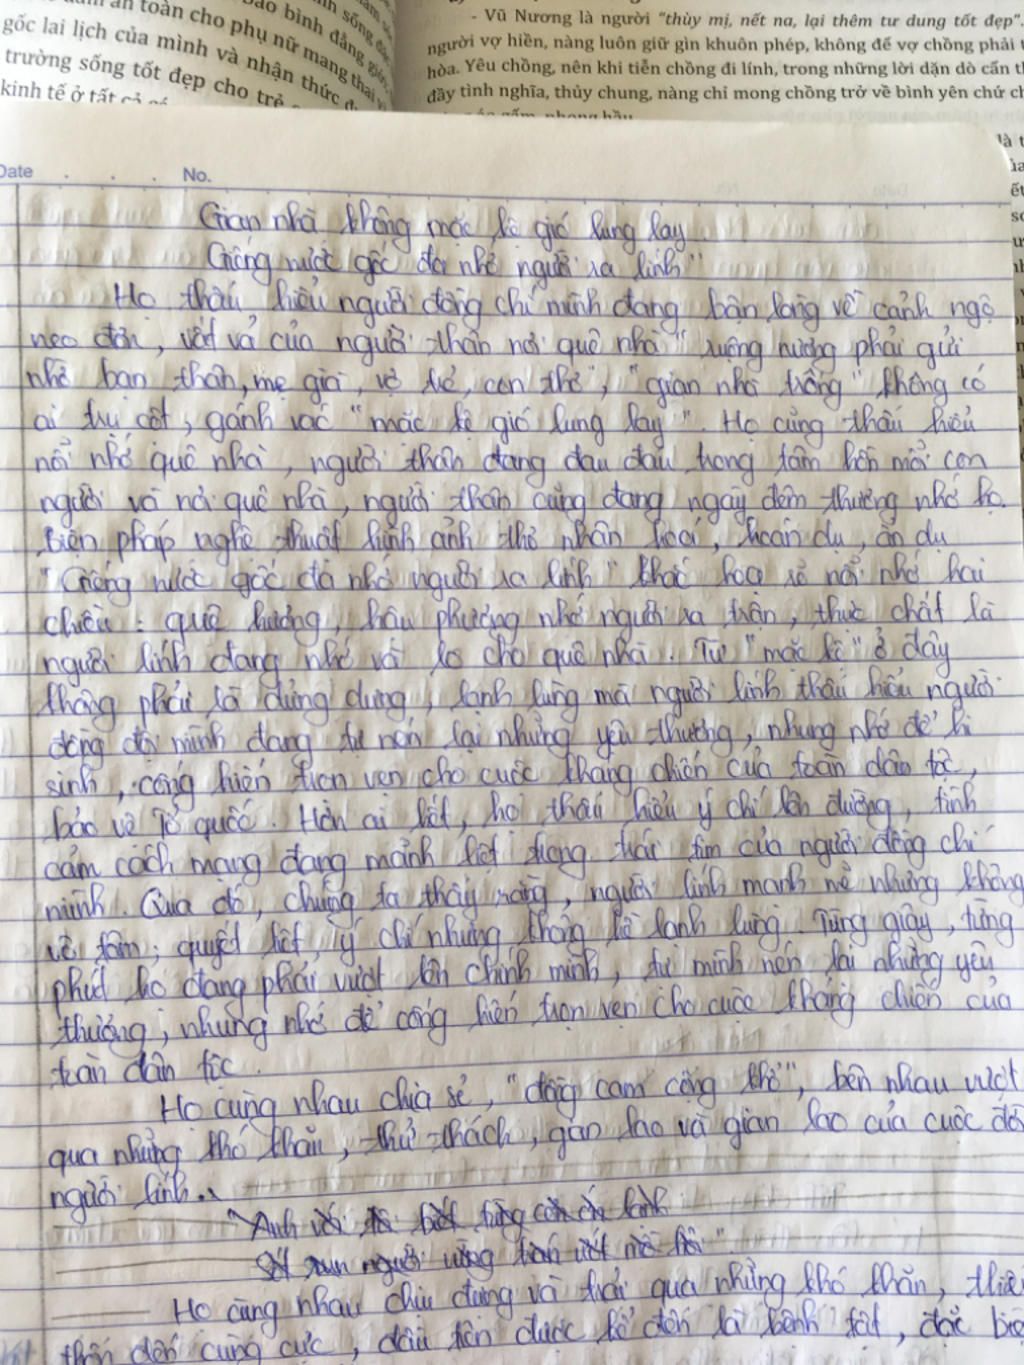 toàn cho phụ nữ mang thai
gốc lai lịch của mình và nhận thức
trường sống tốt đẹp cho trẻ
kinh tế ở tất cả
- Vũ Nương là người "thùy mị, nết na, lại thêm tư dung tốt đẹp".
người vợ hiền, nàng luôn giữ gìn khuôn phép, không để vợ chồng phải
hòa. Yêu chồng, nên khi tiễn chồng đi lính, trong những lời dặn dò cẩn
đầy tình nghĩa, thủy chung, nàng chỉ mong chồng trở về bình yên chứ
Date . . . No.
Gian nhà không mặc kệ gió lung lay
Giếng nước gốc đa nhớ người ra lính"
Họ thấu hiểu người đồng chí mình đang bận lòng về cảnh ngộ
neo đơn, vất vả của người thân nơi quê nhà "ruộng nương phải gửi
nhờ bạn thân, mẹ già, vợ trẻ, con thơ", "gian nhà trống" không có
ai trụ cột, gánh vác "mặc kệ gió lung lay". Họ cũng thấu hiểu
nỗi nhớ quê nhà, người thân đang đau đáu trong tâm hồn mỗi con
người và nơi quê nhà, người thân cũng đang ngày đêm thương nhớ họ.
Biện pháp nghệ thuật hình ảnh thơ nhân hoá, hoán dụ, ẩn dụ
"Giếng nước gốc đa nhớ người ra lính" khắc hoạ rõ nỗi nhớ hai
chiều: quê hương, hậu phương nhớ người ra trận, thực chất là
người lính đang nhớ và lo cho quê nhà. Từ "mặc kệ" ở đây
không phải là dửng dưng, lạnh lùng mà người lính thấu hiểu người
đồng đội mình đang tự nén lại những yêu thương, nhung nhớ để hi
sinh, cống hiến trọn vẹn cho cuộc kháng chiến của toàn dân tộc,
bảo vệ Tổ quốc. Hơn ai hết, họ thấu hiểu ý chí lên đường, tình
cảm cách mạng đang mãnh liệt trong trái tim của người đồng chí
mình. Qua đó, chúng ta thấy rằng, người lính mạnh mẽ nhưng không
vô tâm; quyết liệt, lý chí nhưng không hề lạnh lùng. Từng giây, từng
phút họ đang phải vượt lên chính mình, tự mình nén lại những yêu
thương, nhung nhớ để cống hiến trọn vẹn cho cuộc kháng chiến của
toàn dân tộc.
Họ cùng nhau chia sẻ, "đồng cam cộng khổ", bên nhau vượt
qua những khó khăn, thử thách, gan lao và gian lao của cuộc đời
người lính.
"Anh với tôi biết từng cơn ớn lạnh
Sốt run người vừng trán ướt mồ hôi"
Họ cùng nhau chịu đựng và trải qua những khó khăn,
thốn đến cùng cực, đầu tiên được kể đến là bệnh tật, đặc